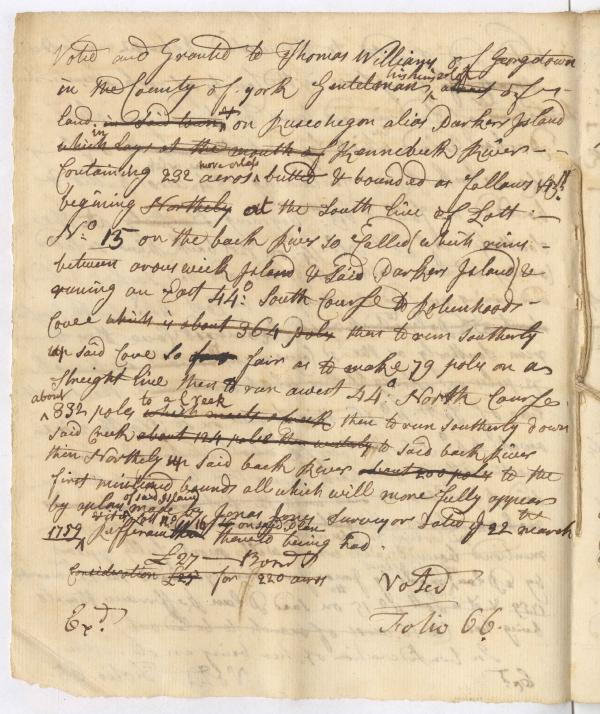 Voted and Granted to Thomas Williams of Georgetown
in the County of york Gentelman his heirs of
land in said town on Ruscohegon alias Parkers Island
which lays at the mouth of in Kennebeck River
Containing 232 acres more or less butted & bounded as follows
begining Northely at the South line of Lott
No. 15 on the back River so Called (which runs
between arouswick Island & said Parkers Island) &
runing an East 44°: South Course to Robinhoods
Cove which is about 364 poles then to run Southerly
up said Cove so far fair as to make 79 poles on a
streight line then to run a west 44° North Course
about 332 poles to a Creek which meets a Creek then to run southerly down
said Creek about 124 poles then westerly to said back River
then Northely up said back River about 200 poles to the
first mentioned bounds all which will more fully appear
by a plan of said Island made by Jonas Jones Surveyor Dated ye 22 march
1759 Refferance thereto being had.
£27 Bond
Consideration £27 for 220 acres
Voted
Exd.
Folio 66.